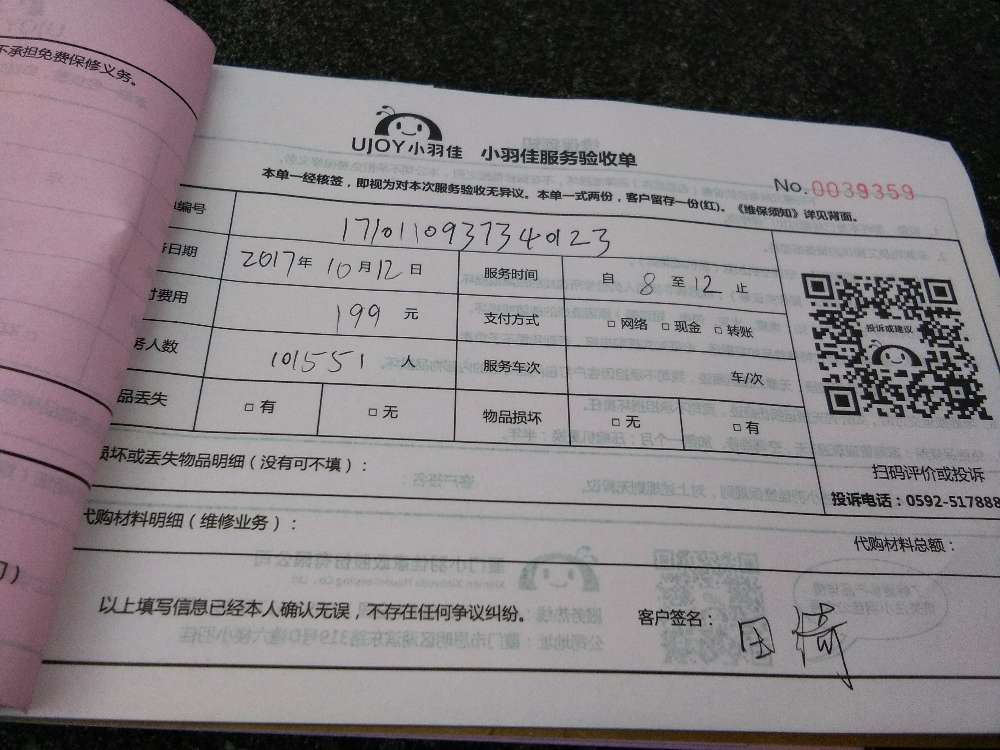 不承担免费保修义务。
UJOY小羽佳 小羽佳服务验收单
No.0039359
本单一经核签，即视为对本次服务验收无异议。本单一式两份，客户留存一份(红)。《维保须知》详见背面。
编号 1710110937340123
日期 2017年10月12日 服务时间 自 8 至 12 止
费用 199 元 支付方式 □ 网络 □ 现金 □ 转账
人数 101551 人 服务车次 车/次
品丢失 □ 有 □ 无 物品损坏 □ 无 □ 有
投诉或建议
扫码评价或投诉
投诉电话：0592-517888
损坏或丢失物品明细（没有可不填）：
代购材料明细（维修业务）：
代购材料总额：
以上填写信息已经本人确认无误，不存在任何争议纠纷。
客户签名：